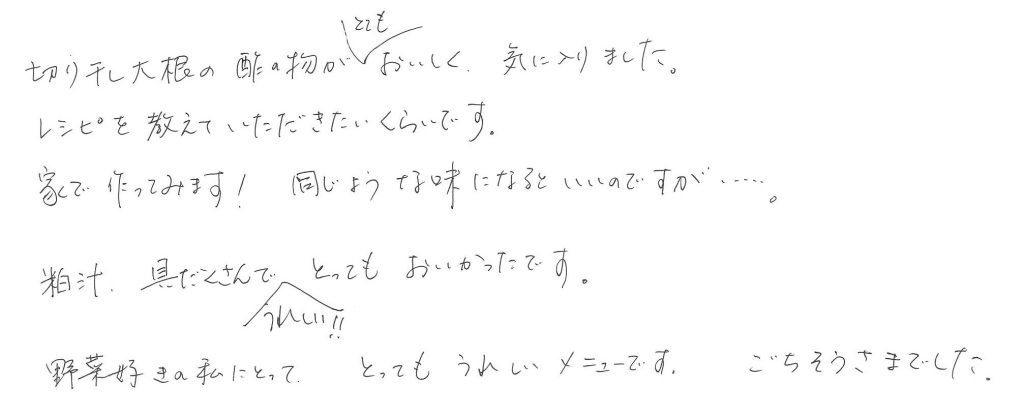 切り干し大根の酢の物がとてもおいしく、気に入りました。
レシピを教えていただきたいくらいです。
家で作ってみます! 同じような味になるといいのですが……。
粕汁、具だくさんでうれしい!! とってもおいかったです。
野菜好きの私にとって、とってもうれしいメニューです。 ごちそうさまでした。